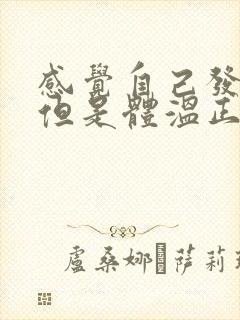 感覺自己發
但是體溫正
盧桑娜·萨莉